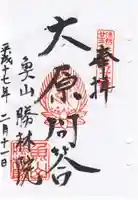 奉拝
大原問答
魚山勝林院
平成十七年 二月十一日